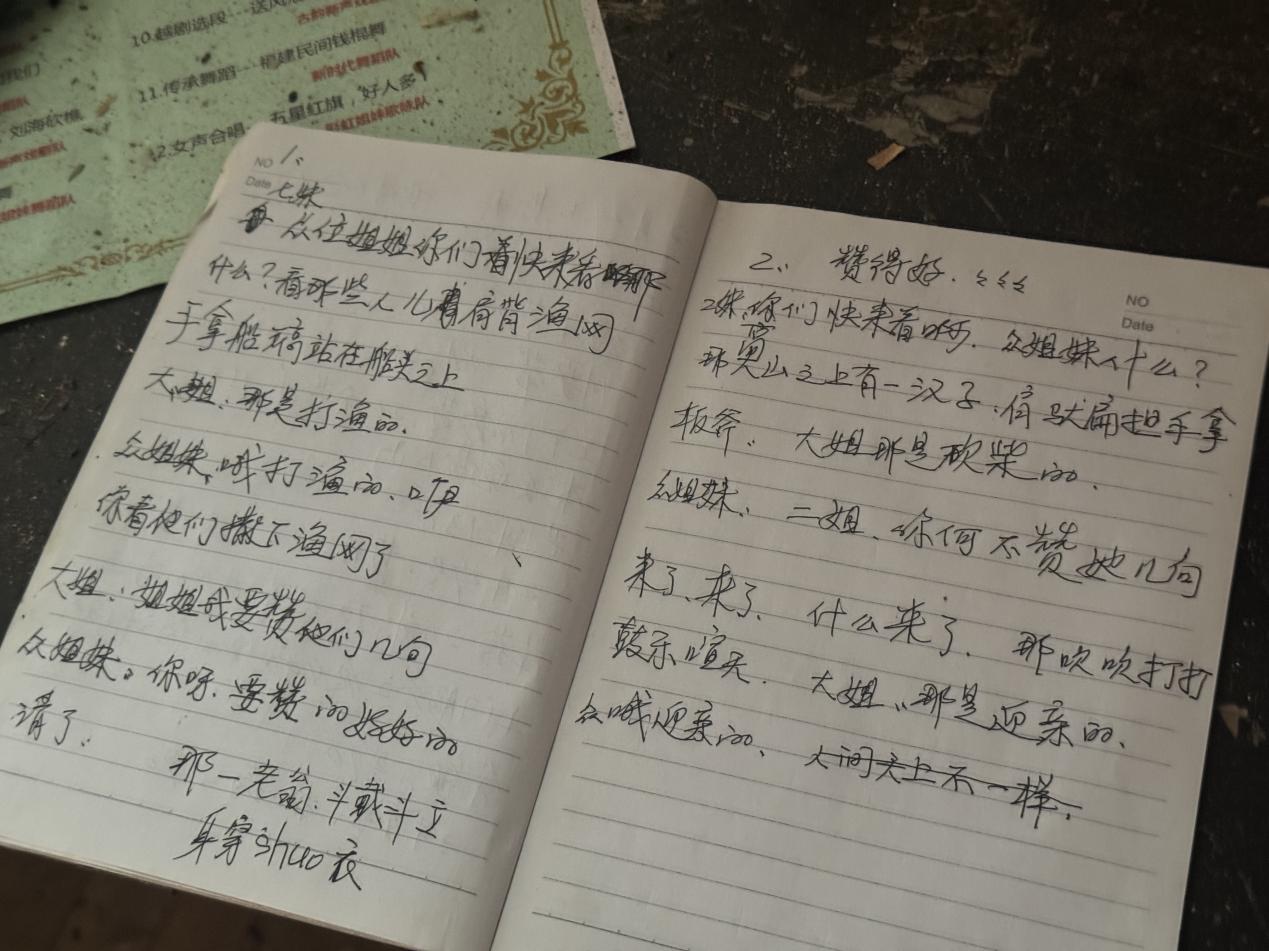 10.越剧选段
11.传承舞蹈 福建民间钱棍舞
新时代舞蹈队
刘海砍樵
12.女声合唱 五星红旗，好人多
彩虹姐妹歌咏队
NO 1、
Date 七妹
众位姐姐你们着快来看那
什么？看那些人儿肩背渔网
手拿船篙站在船头之上
大姐、那是打渔的.
众姐妹、哦打渔的、咱
你看他们撒下渔网了
大姐、姐姐我要赞他们几句
众姐妹。你呀.要赞的好好的
请了.
那一老翁.斗戴斗立
身穿shuo衣
2、 赞得好.
NO
Date
2妹、你们快来看啊. 众姐妹、什么？
那 山之上有一汉子、肩 扁担手拿
板斧. 大姐那是砍柴的.
众姐妹、 二姐、你何不赞她几句
来了、来了、 什么来了. 那吹吹打打
鼓乐喧天. 大姐、那是迎亲的、
众哦迎亲的、 人间天上不一样.